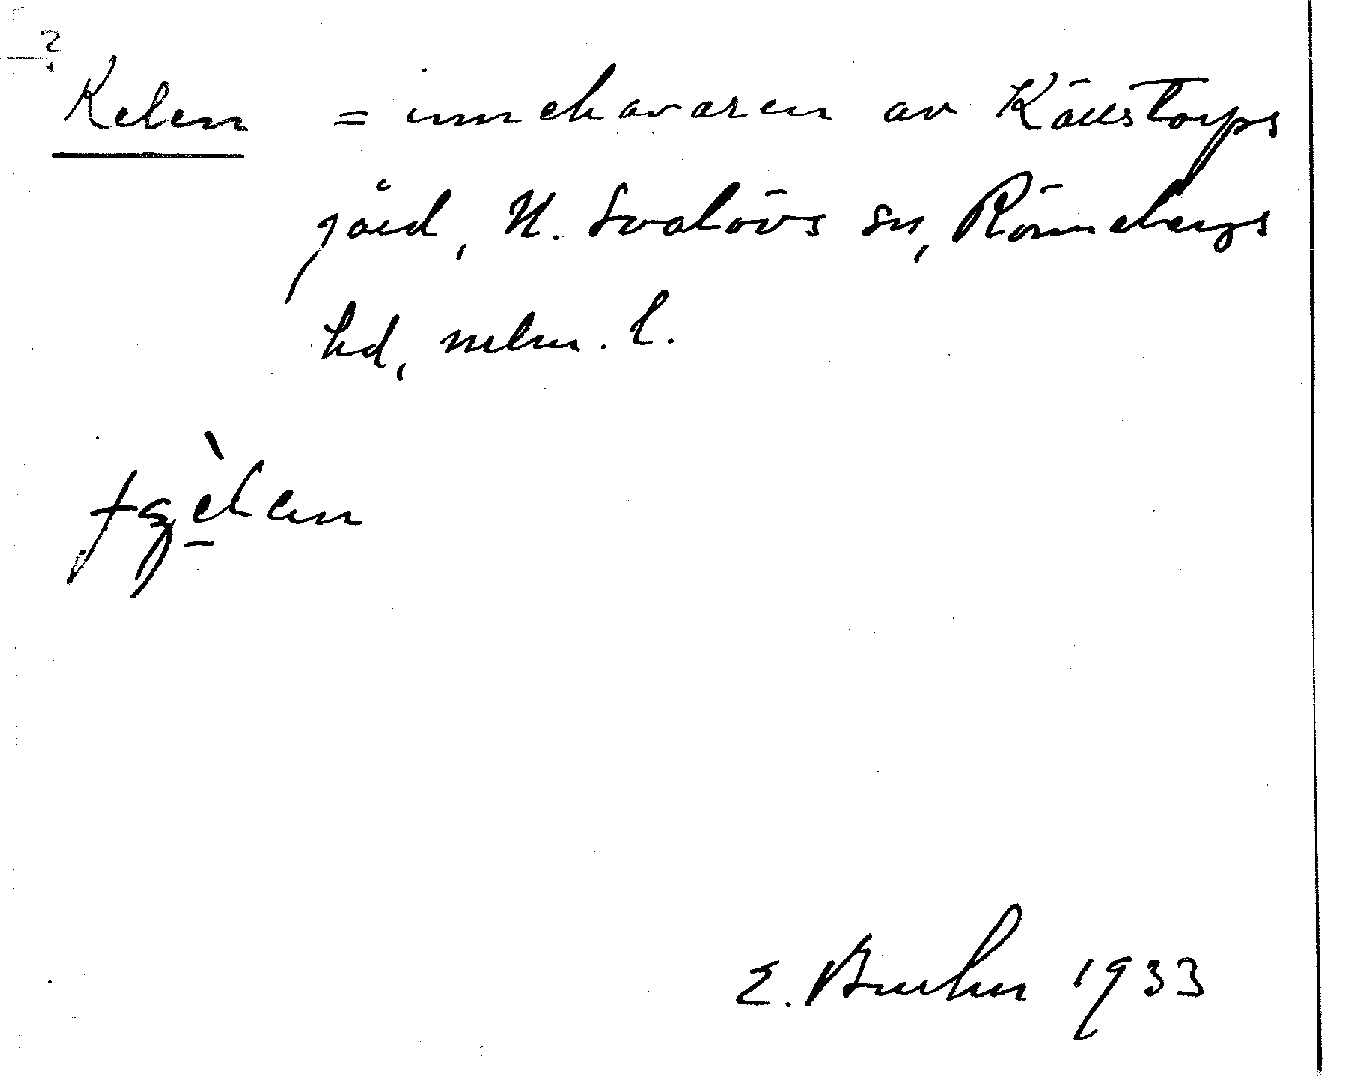 ?
Kelen = innehavaren av Källstorps
gård, N. Svalövs sn, Rönnebergs
hd, mlm. l.
E. Bruhn 1933